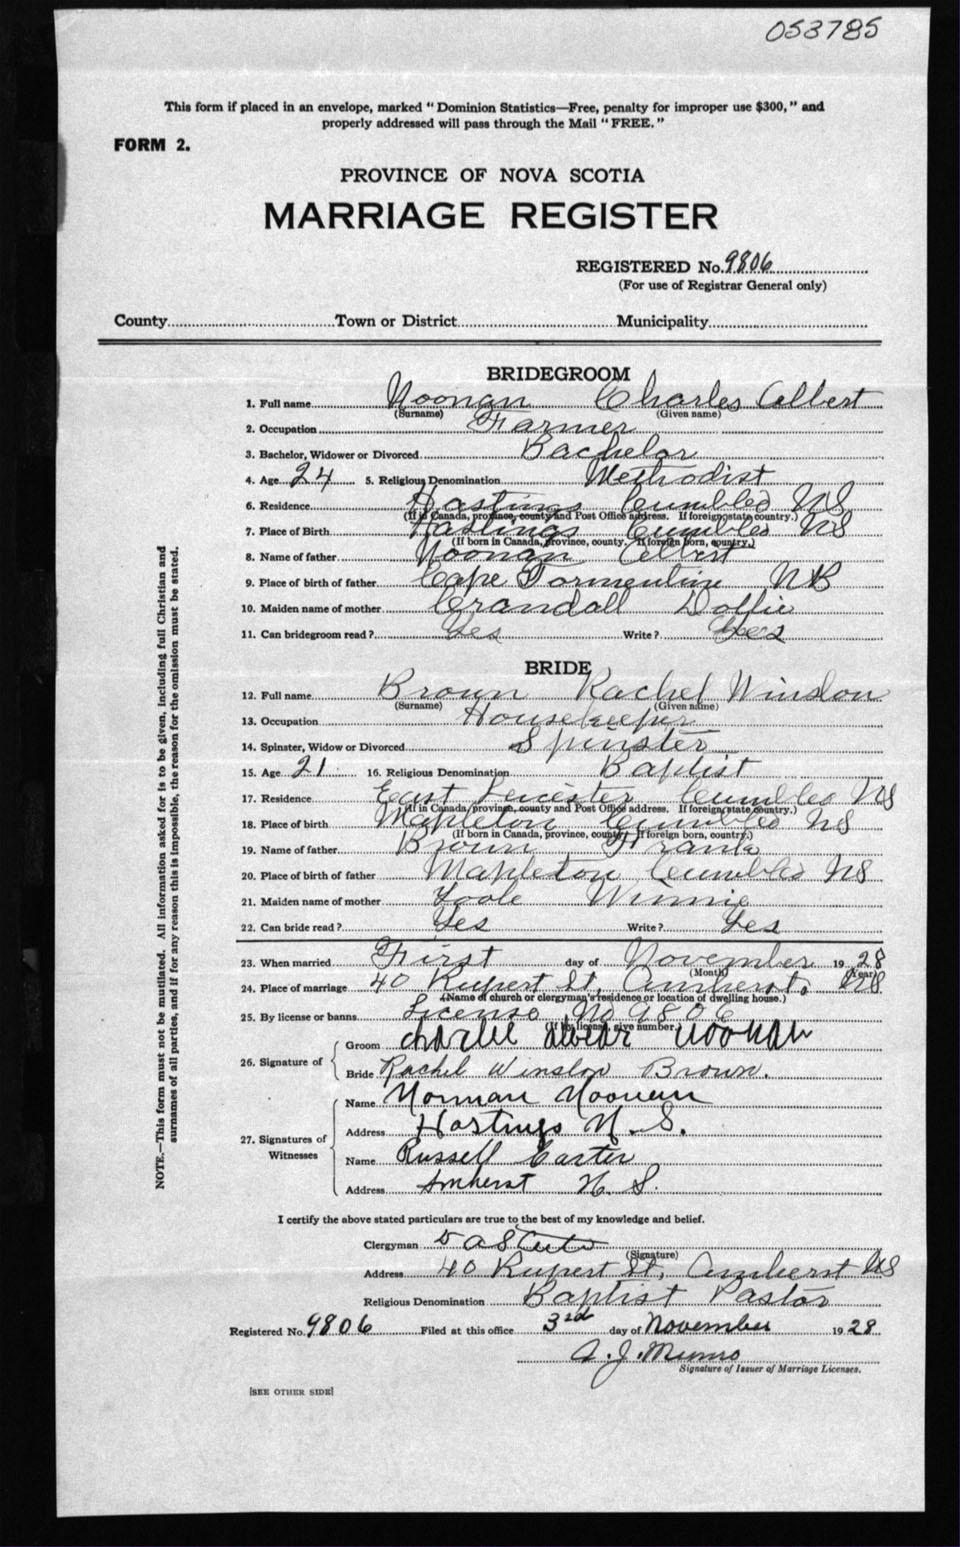 053785
This form if placed in an envelope, marked "Dominion Statistics—Free, penalty for improper use $300," and
properly addressed will pass through the Mail "FREE."
FORM 2.
PROVINCE OF NOVA SCOTIA
MARRIAGE REGISTER
REGISTERED No. 9806
(For use of Registrar General only)
County Town or District Municipality
BRIDEGROOM
1. Full name Noonan Charles Albert
(Surname) (Given name)
2. Occupation Farmer
3. Bachelor, Widower or Divorced Bachelor
4. Age 24 5. Religious Denomination Methodist
6. Residence Hastings Cumbld NS
(If in Canada, province, county and Post Office address. If foreign state country.)
7. Place of Birth Hastings Cumbld NS
(If born in Canada, province, county. If foreign born, country.)
8. Name of father Noonan Albert
9. Place of birth of father Cape Tormentine NB
10. Maiden name of mother Crandall Dollie
11. Can bridegroom read? Yes Write? Yes
BRIDE
12. Full name Brown Rachel Winslow
(Surname) (Given name)
13. Occupation Housekeeper
14. Spinster, Widow or Divorced Spinster
15. Age 21 16. Religious Denomination Baptist
17. Residence East Leicester Cumbld NS
(If in Canada, province, county and Post Office address. If foreign state country.)
18. Place of birth Mapleton Cumbld NS
(If born in Canada, province, county. If foreign born, country.)
19. Name of father Brown Frank
20. Place of birth of father Mapleton Cumbld NS
21. Maiden name of mother Toole Winnie
22. Can bride read? Yes Write? Yes
23. When married First day of November 1928
(Month) (Year)
24. Place of marriage 40 Rupert St, Amherst, NS
(Name of church or clergyman's residence or location of dwelling house.)
25. By license or banns License No 9806
(If by license, give number.)
26. Signature of
Groom Charlie Noonan
Bride Rachel Winslow Brown.
27. Signatures of Witnesses
Name Norman Noonan
Address Hastings N.S.
Name Russell Carter
Address Amherst N.S.
I certify the above stated particulars are true to the best of my knowledge and belief.
Clergyman
(Signature)
Address 40 Rupert St, Amherst NS
Religious Denomination Baptist Pastor
Registered No. 9806 Filed at this office 3rd day of November 1928
A. J. Munro
Signature of Issuer of Marriage Licenses.
[SEE OTHER SIDE]
NOTE.—This form must not be mutilated. All information asked for is to be given, including full Christian and
surnames of all parties, and if for any reason this is impossible, the reason for the omission must be stated.